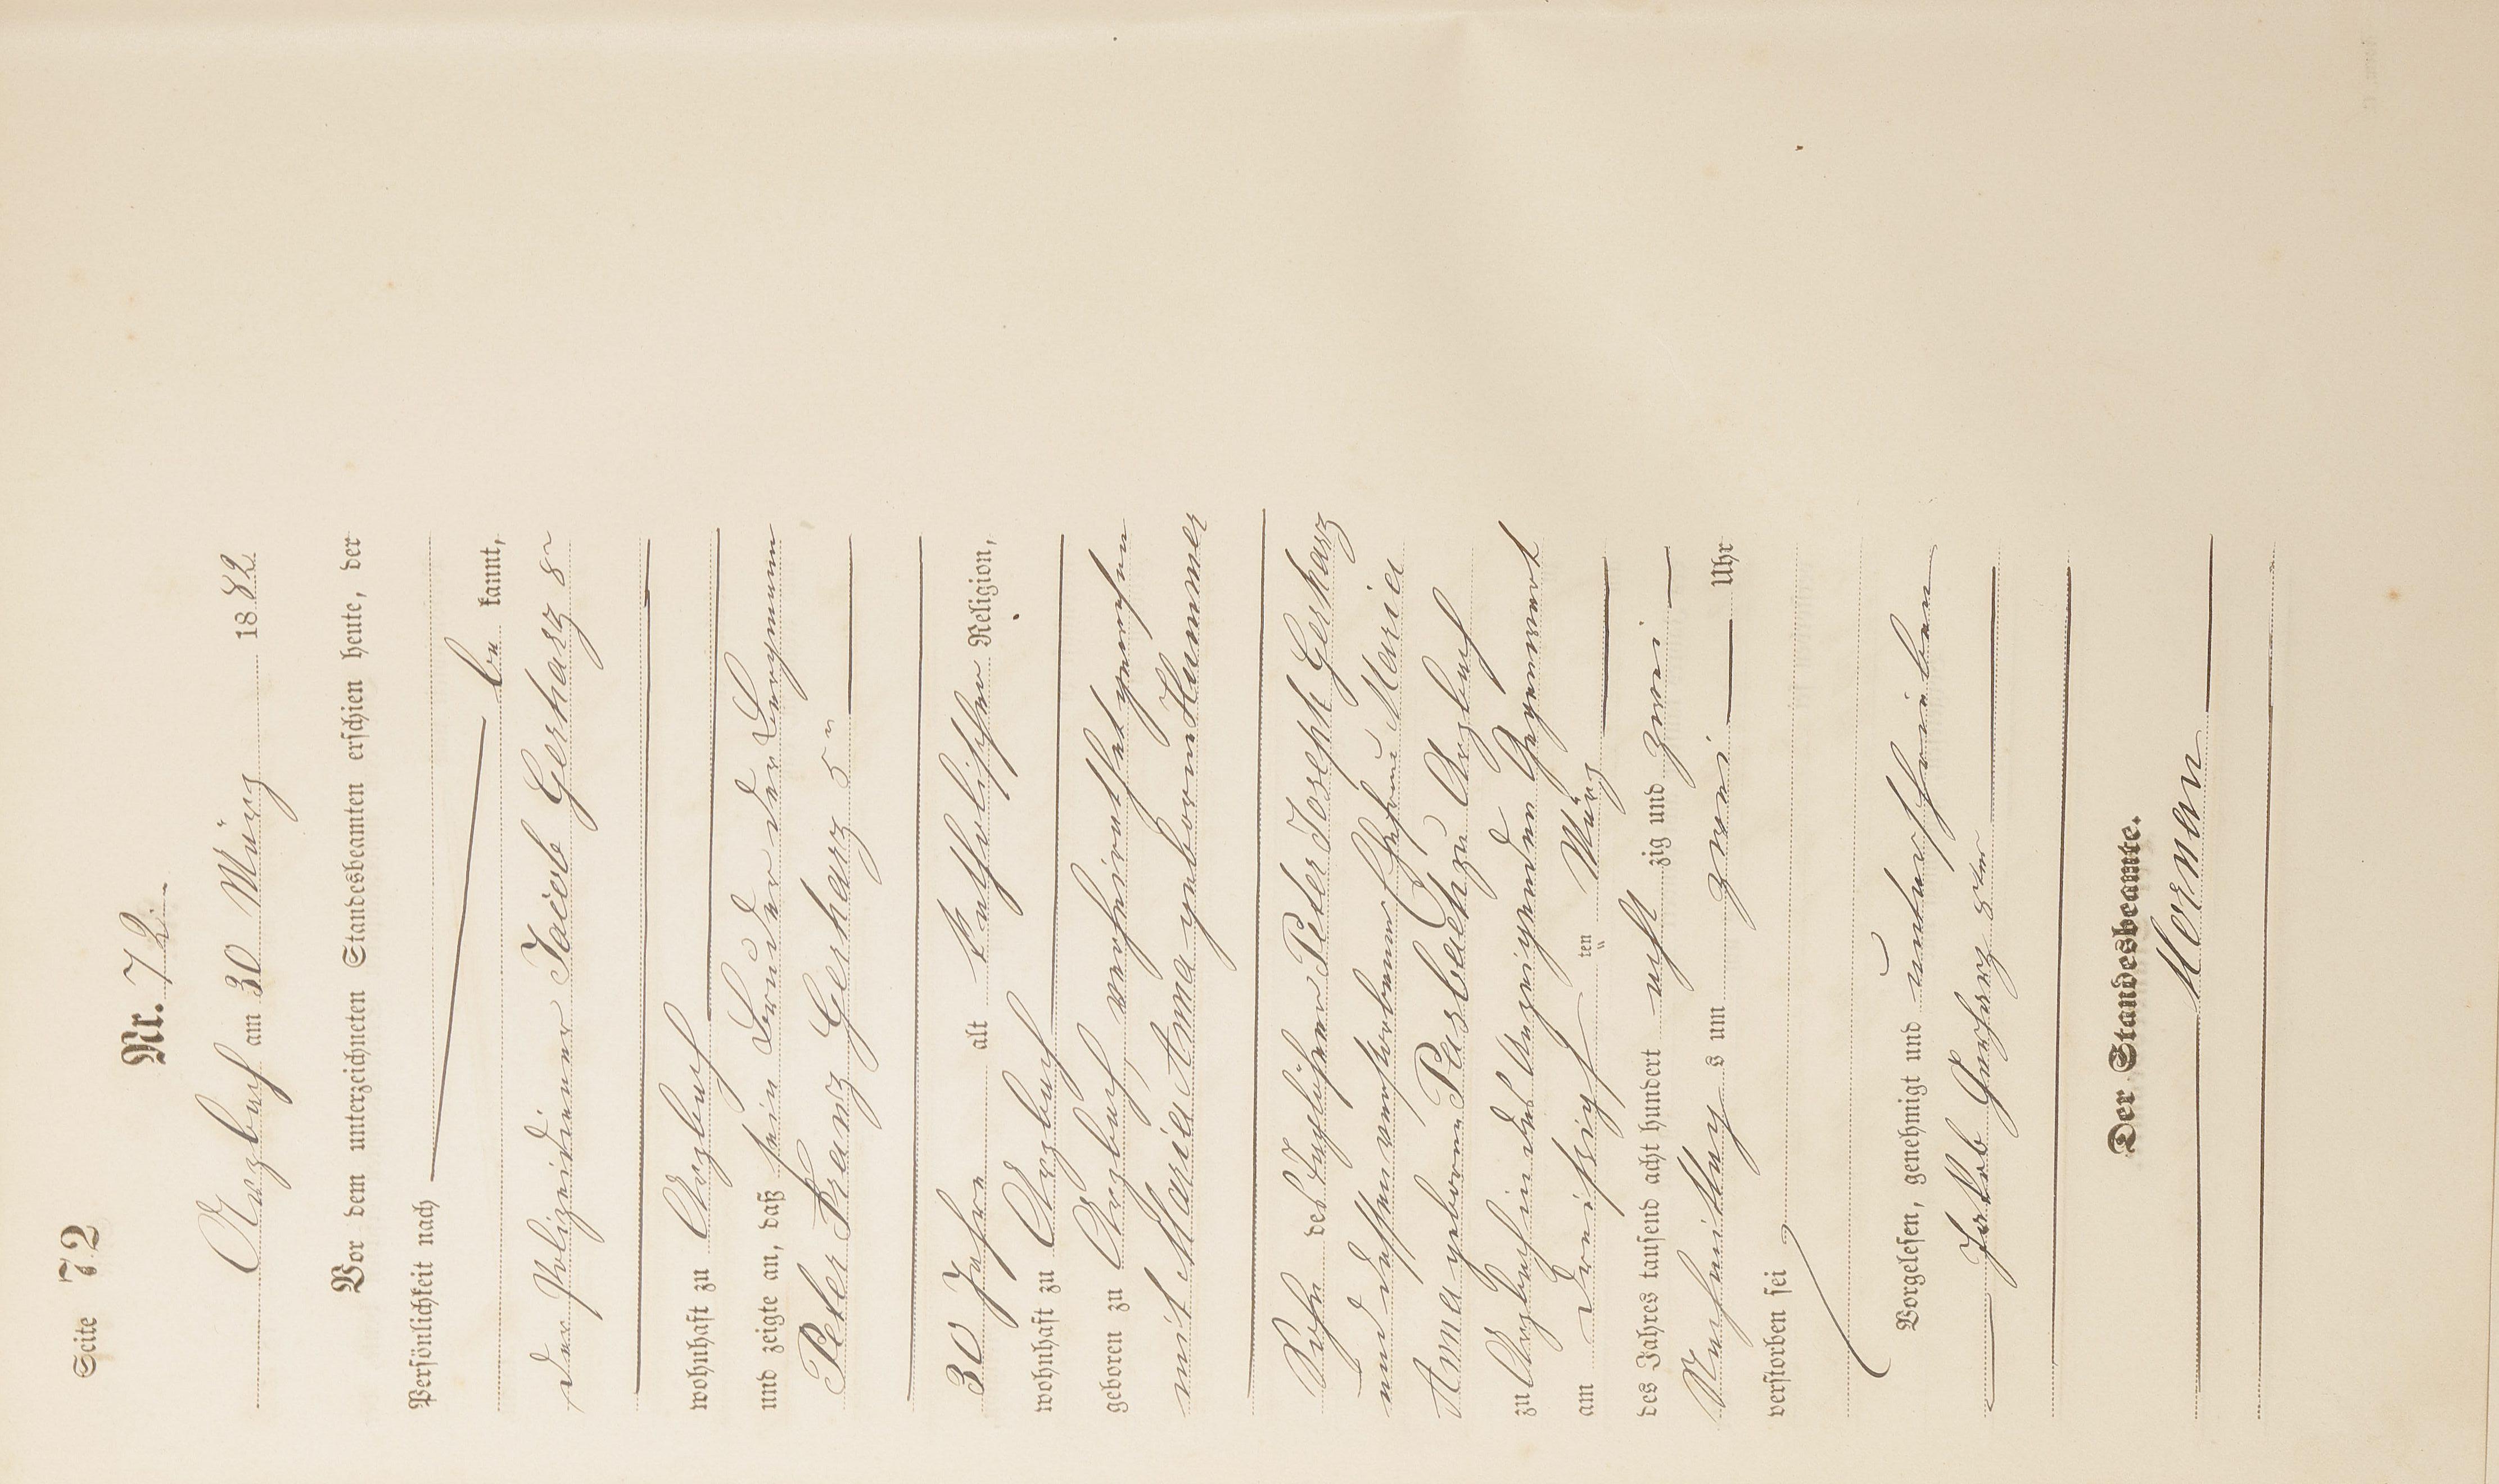 Seite 72
Nr. 72.
Arzbach am 30 März 1882
Vor dem unterzeichneten Standesbeamten erschien heute, der
Persönlichkeit nach
be kannt,
der Polizeidiener Jacob Gerharz 8r
wohnhaft zu Arzbach
und zeigte an, daß sein Bruder der Bergmann
Peter Franz Gerharz 5r
30 Jahre alt katholischer Religion,
wohnhaft zu Arzbach
geboren zu Arzbach, verheirathet gewesen
mit Maria Anna geborne Hummer
Sohn des Taglöhner Peter Joseph Gerharz
und dessen verstorbenen Ehefrau Maria
Anna geborne Pusbach zu Arzbach
zu Arzbach in des Anzeigenden Gegenwart
am dreißigsten März
des Jahres tausend acht hundert acht zig und zwei
Nachmittag s um zwei Uhr
verstorben sei
Vorgelesen, genehmigt und unterschrieben
Jakob Gerharz 8ter
Der Standesbeamte.
Merman